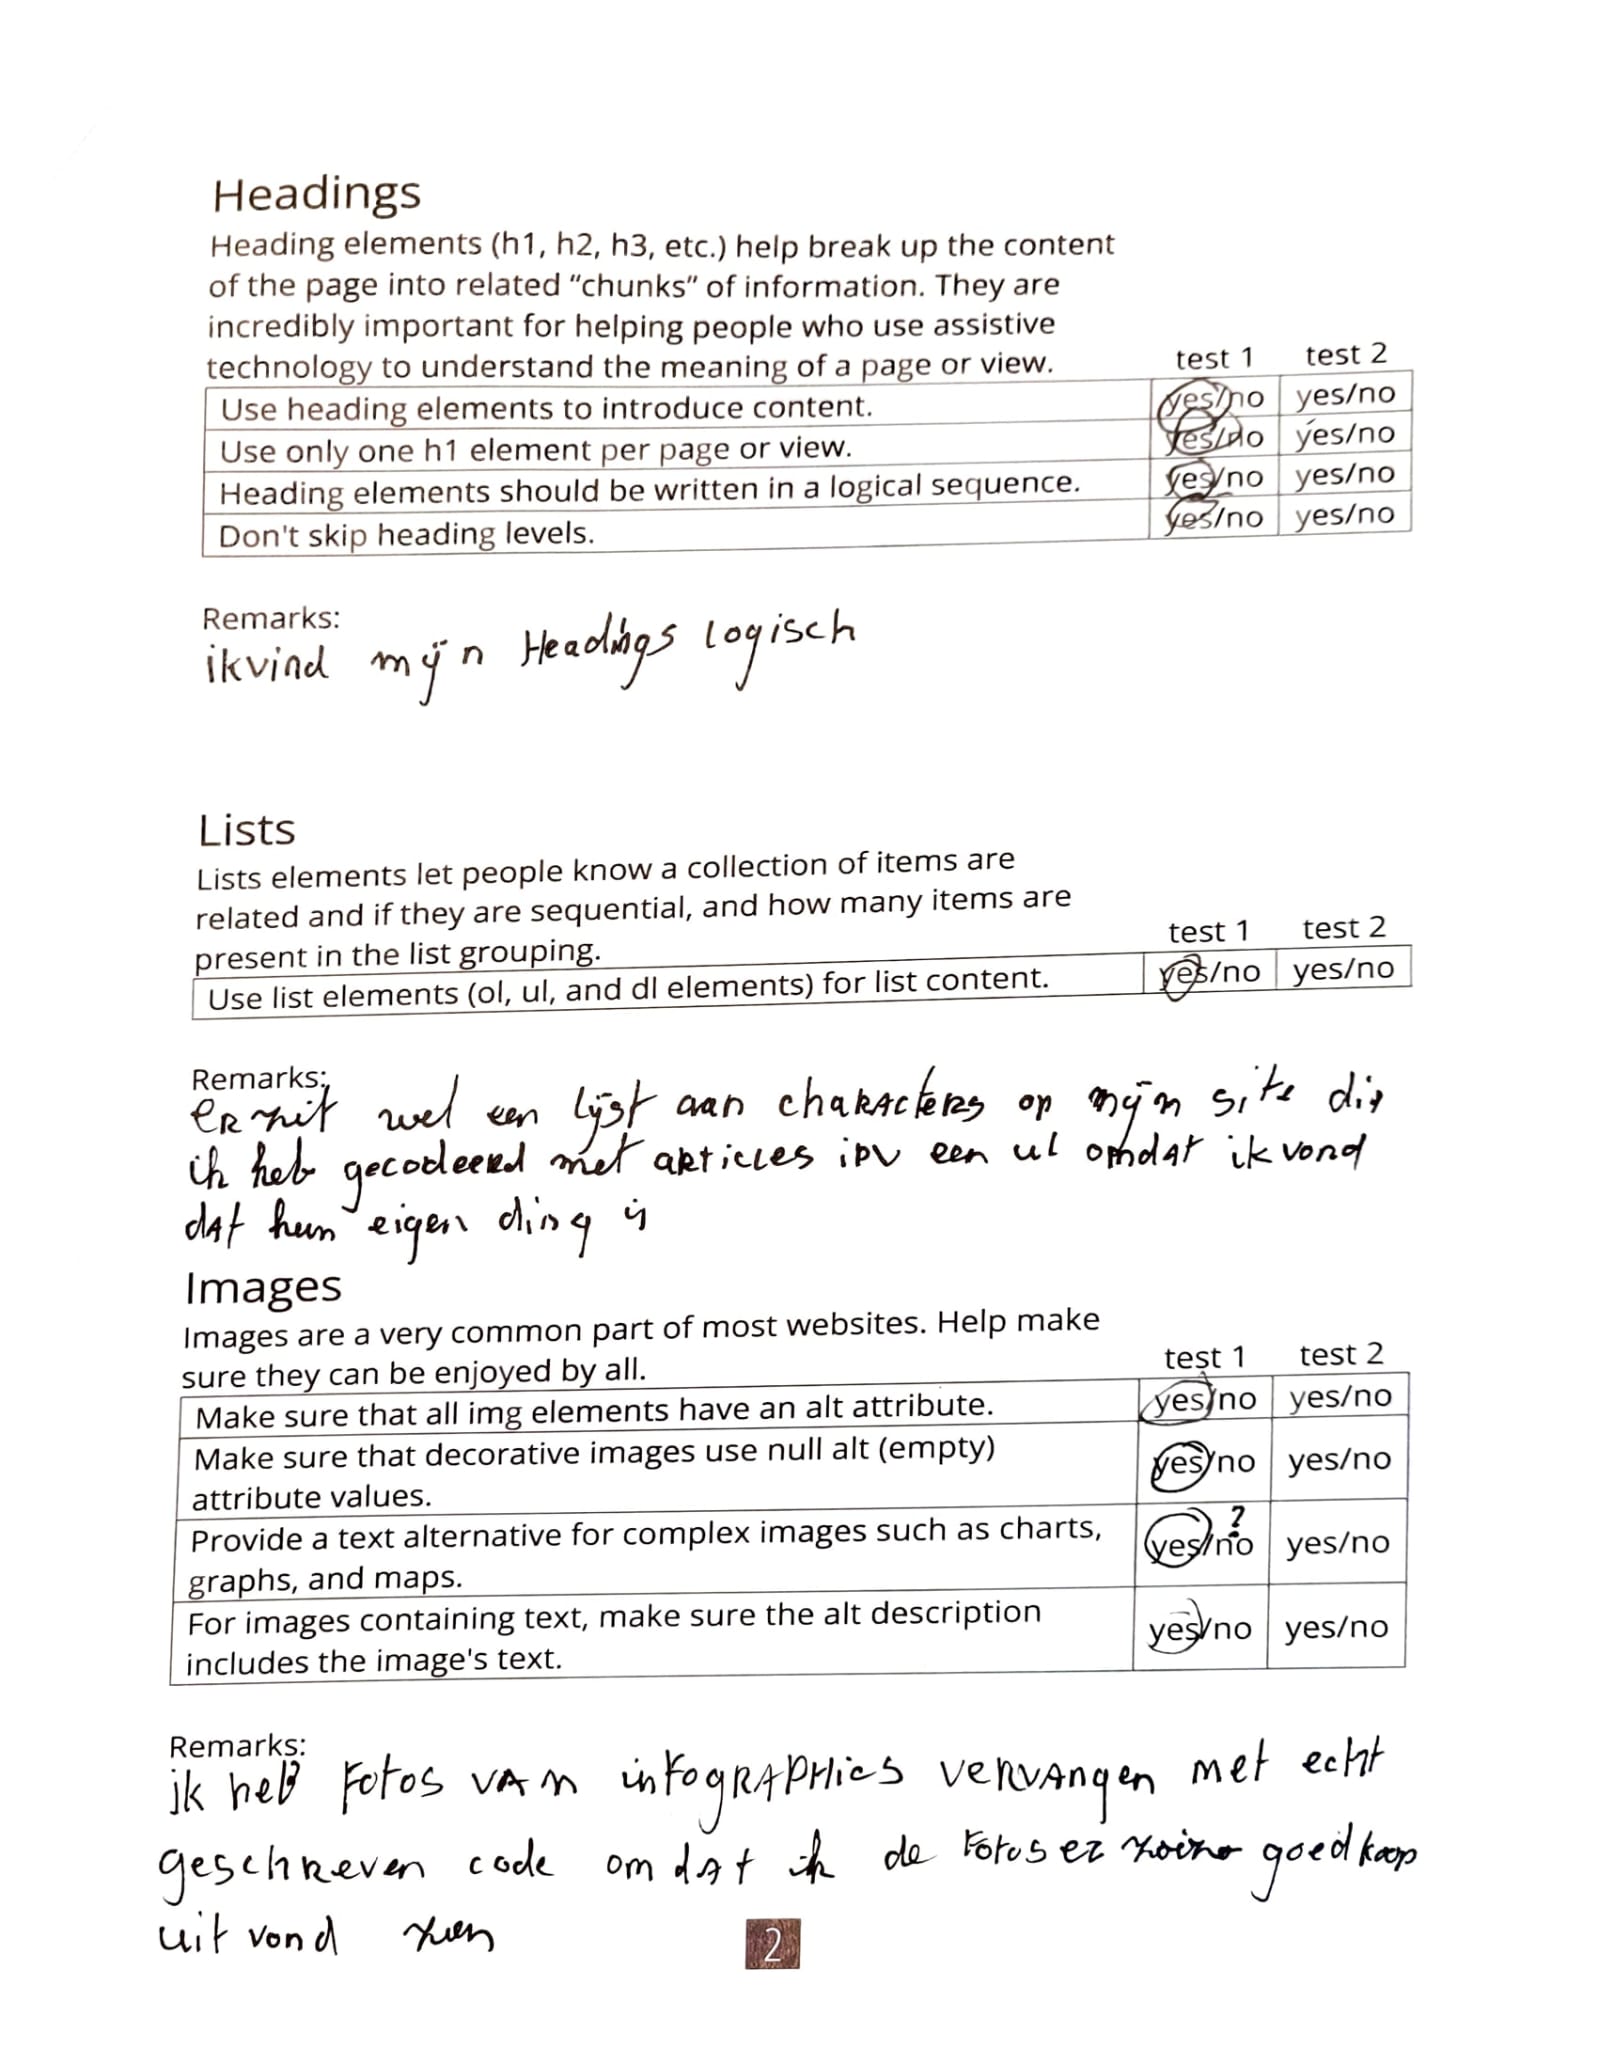 Headings
Heading elements (h1, h2, h3, etc.) help break up the content
of the page into related “chunks” of information. They are
incredibly important for helping people who use assistive
technology to understand the meaning of a page or view. test 1 test 2
Use heading elements to introduce content. yes/no yes/no
Use only one h1 element per page or view. yes/no yes/no
Heading elements should be written in a logical sequence. yes/no yes/no
Don't skip heading levels. yes/no yes/no
Remarks:
ik vind mijn Headings logisch
Lists
Lists elements let people know a collection of items are
related and if they are sequential, and how many items are
present in the list grouping. test 1 test 2
Use list elements (ol, ul, and dl elements) for list content. yes/no yes/no
Remarks:
er zit wel een lijst aan charakters op mijn site die
ik heb gecodeerd met articles ipv een ul omdat ik vond
dat hun eigen ding is
Images
Images are a very common part of most websites. Help make
sure they can be enjoyed by all. test 1 test 2
Make sure that all img elements have an alt attribute. yes/no yes/no
Make sure that decorative images use null alt (empty)
attribute values. yes/no yes/no
Provide a text alternative for complex images such as charts,
graphs, and maps. yes/no ? yes/no
For images containing text, make sure the alt description
includes the image's text. yes/no yes/no
Remarks:
ik heb fotos van infographics vervangen met echt
geschreven code omdat ik de fotos er goedkoop
uit vond zien
2